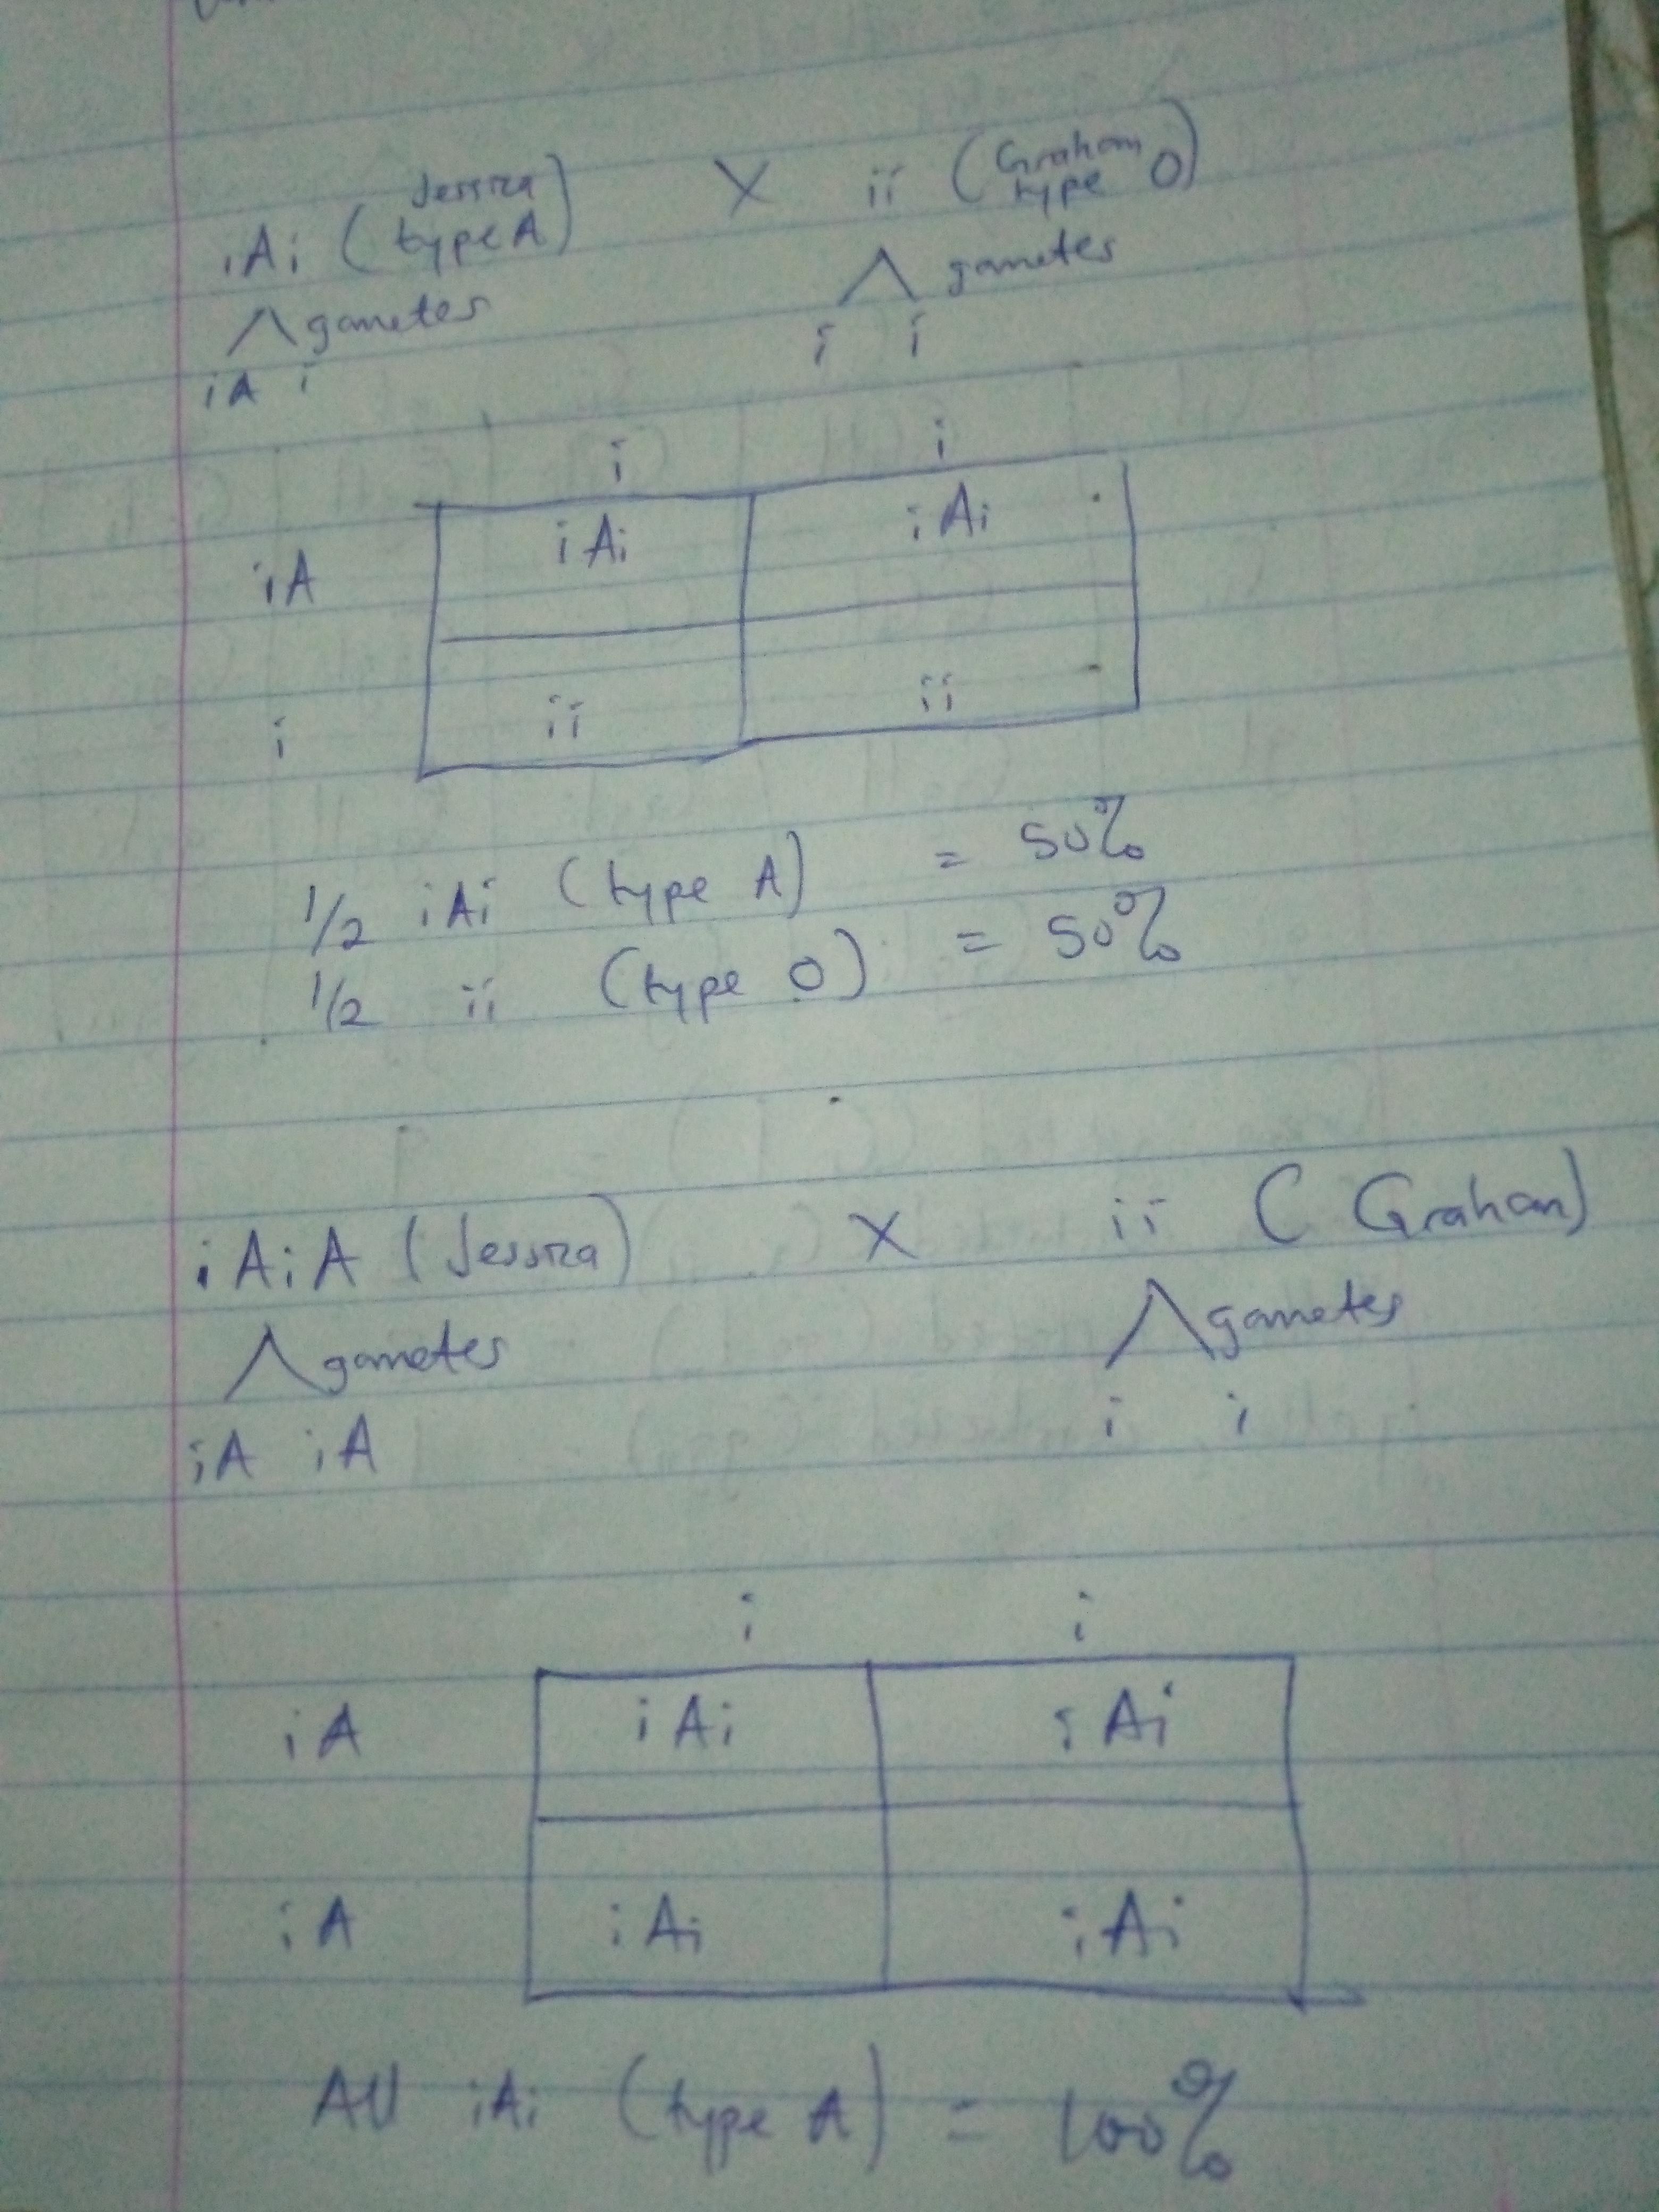 iAi (Jessica type A) X ii (Graham type O)
gametes gametes
iA i i i
i i
iA iAi iAi
i ii ii
1/2 iAi (type A) = 50%
1/2 ii (type O) = 50%
iAiA (Jessica) X ii (Graham)
gametes gametes
iA iA i i
i i
iA iAi iAi
iA iAi iAi
All iAi (type A) = 100%